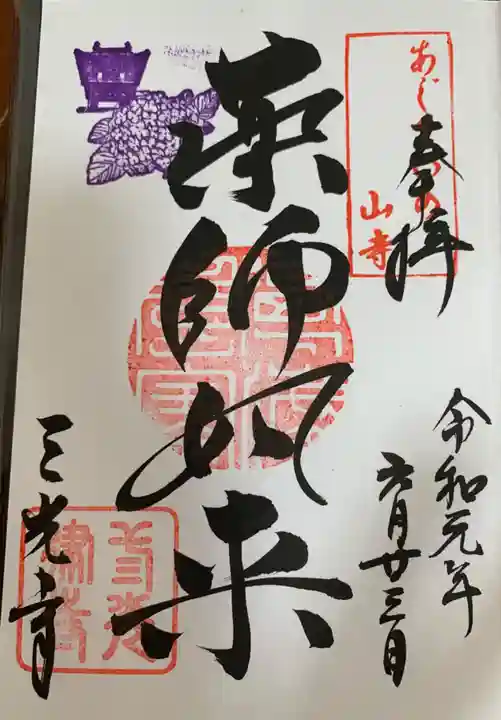 奉拝
あじ
山寺
令和元年
六月廿三日
薬師如来
三光寺